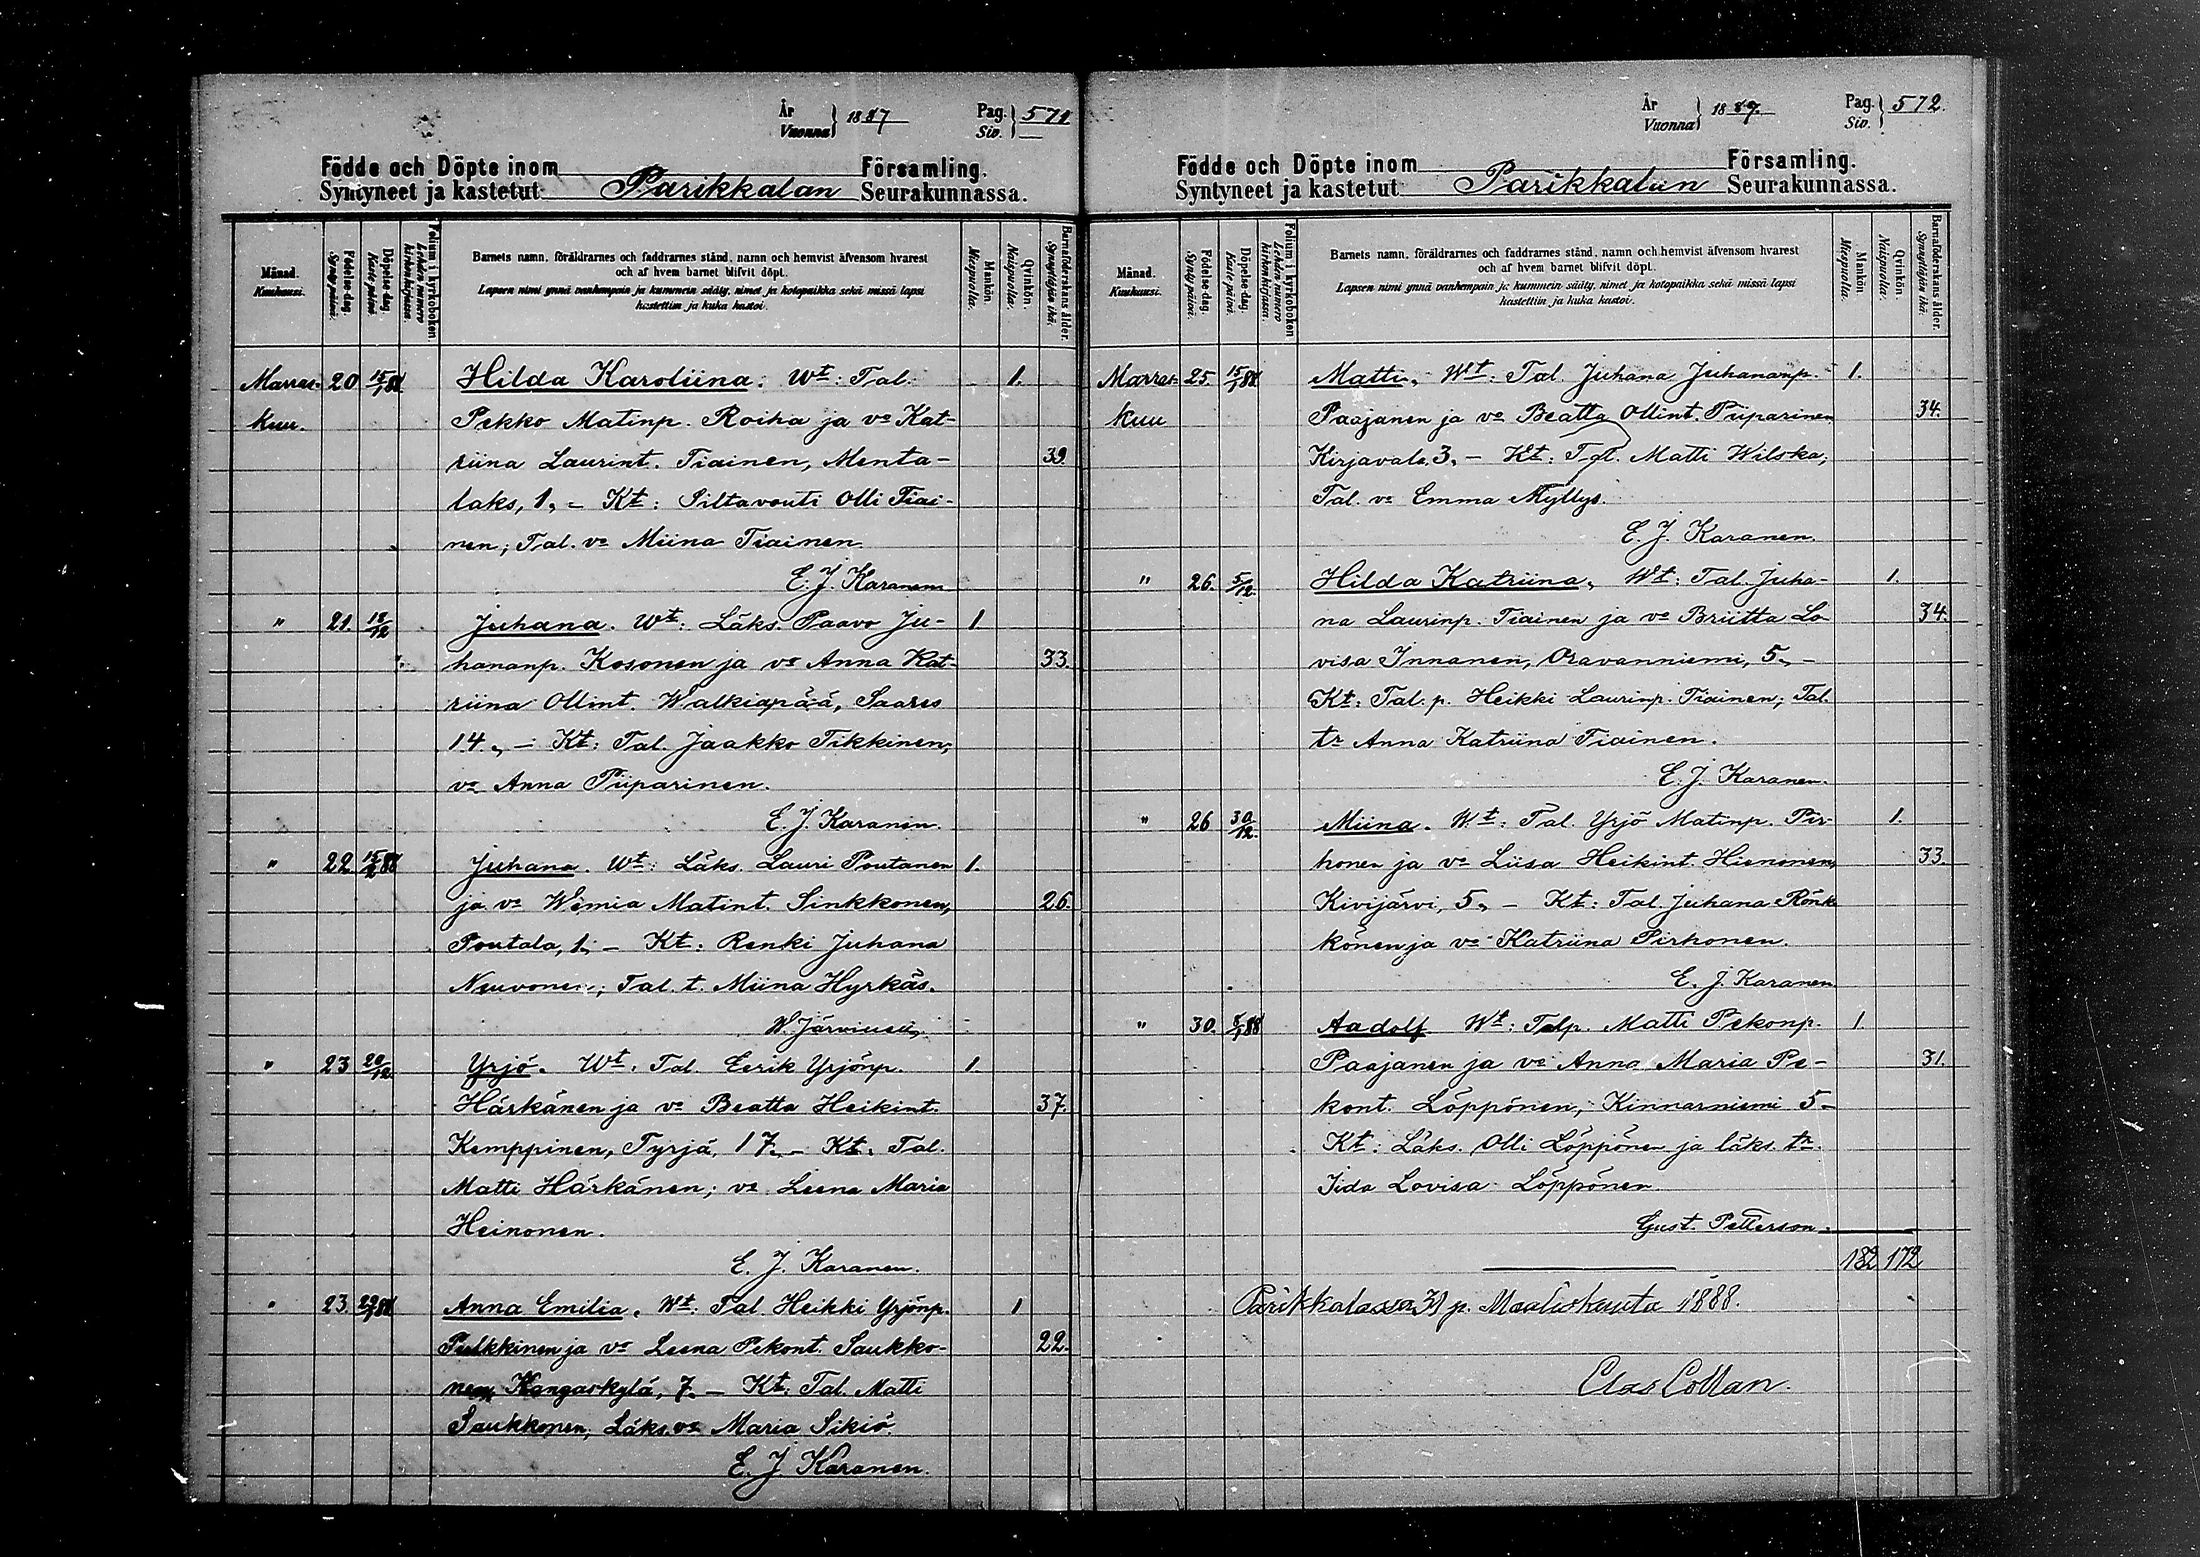 År
Vuonna } 1887 Pag.
Siv. } 571
Födde och Döpte inom Församling.
Syntyneet ja kastetut Parikkalan Seurakunnassa.
Månad.
Kuukausi.
Födelse-dag.
Synty päivä.
Döpelse-dag.
Kaste päivä.
Folium i kyrkoboken
Lehden numero
kirkonkirjassa.
Barnets namn, föräldrarnes och faddrarnes stånd, namn och hemvist äfvensom hvarest
och af hvem barnet blifvit döpt.
Lapsen nimi ynnä vanhempain ja kummein sääty, nimet ja kotopaikka sekä missä lapsi
kastettiin ja kuka kastoi.
Mankön.
Miespuolia.
Qvinkön.
Naispuolia.
Barnaföderskans ålder.
Synnyttäjän ikä.
Marras- 20 15/1 88 Hilda Karoliina. Wt: Tal. 1.
kuu. Pekko Matinp. Roiha ja vo Kat-
riina Laurint. Tiainen, Menta- 39.
laks, 1. – Kt: Siltavouti Olli Tiai-
nen; Tal. vo Miina Tiainen.
E. J. Karanen
" 21. 18/12 Juhana. Wt: Läks. Paavo Ju- 1
hananp. Kosonen ja vo Anna Kat- 33.
riina Ollint. Walkiapää, Saares
14. – Kt: Tal. Jaakko Tikkinen;
vo Anna Piiparinen.
E. J. Karanen.
" 22 15/2 88 Juhana. Wt: Läks. Lauri Poutanen 1.
ja vo Wemia Matint. Sinkkonen, 26.
Poutala, 1. – Kt: Renki Juhana
Neuvonen; Tal. t. Miina Hyrkäs.
W. Järvinen
" 23 20/12 Yrjö. Wt. Tal. Eerik Yrjönp. 1.
Härkänen ja vo Beatta Heikint. 37.
Kemppinen, Tyrjä, 17. – Kt. Tal.
Matti Härkänen; vo Leena Maria
Heinonen.
E. J. Karanen.
" 23. 88 Anna Emilia. Wt: Tal Heikki Yrjönp. 1
Pulkkinen ja vo Leena Pekont. Saukko- 22.
nen, Kangaskylä, 7. – Kt: Tal. Matti
Saukkonen, Läks. vo Maria Sikiö
E. J Karanen.
År
Vuonna } 1887. Pag.
Siv. } 572.
Födde och Döpte inom Församling.
Syntyneet ja kastetut Parikkalan Seurakunnassa.
Månad.
Kuukausi.
Födelse-dag.
Synty päivä.
Döpelse-dag.
Kaste päivä.
Folium i kyrkoboken
Lehden numero
kirkonkirjassa.
Barnets namn, föräldrarnes och faddrarnes stånd, namn och hemvist äfvensom hvarest
och af hvem barnet blifvit döpt.
Lapsen nimi ynnä vanhempain ja kummein sääty, nimet ja kotopaikka sekä missä lapsi
kastettiin ja kuka kastoi.
Mankön.
Miespuolia.
Qvinkön.
Naispuolia.
Barnaföderskans ålder.
Synnyttäjän ikä.
Marras- 25. 15/1 88 Matti. Wt: Tal. Juhana Juhananp. 1.
kuu Paajanen ja vo Beatta Ollint. Piiparinen 34.
Kirjavala. 3. – Kt: Tal. Matti Wilska;
Tal. vo Emma Myllys.
E. J. Karanen.
" 26. 5/12 Hilda Katriina. Wt: Tal. Juha- 1.
na Laurinp. Tiainen ja vo Briitta Lo- 34.
visa Innanen, Oravanniemi, 5. –
Kt: Tal. p. Heikki Laurinp. Tiainen; Tal.
tr Anna Katriina Tiainen.
E. J. Karanen.
" 26 30/12 Miina. Wt: Tal. Yrjö Matinp. Pir- 1.
honen ja vo Liisa Heikint. Hienonen, 33.
Kivijärvi, 5. – Kt: Tal. Juhana Rönk-
könen ja vo Katriina Pirhonen.
E. J. Karanen
" 30. 8/1 88 Aadolf Wt: Talp. Matti Pekonp. 1.
Paajanen ja vo Anna Maria Pe- 31.
kont. Löppönen, Kinnarniemi 5 –
Kt: Läks. Olli Löppönen ja läks. tr.
Iida Lovisa Löppönen
Gust. Petterson.
182 172
Parikkalassa 31 p. Maaliskuuta 1888.
Clas Collan.